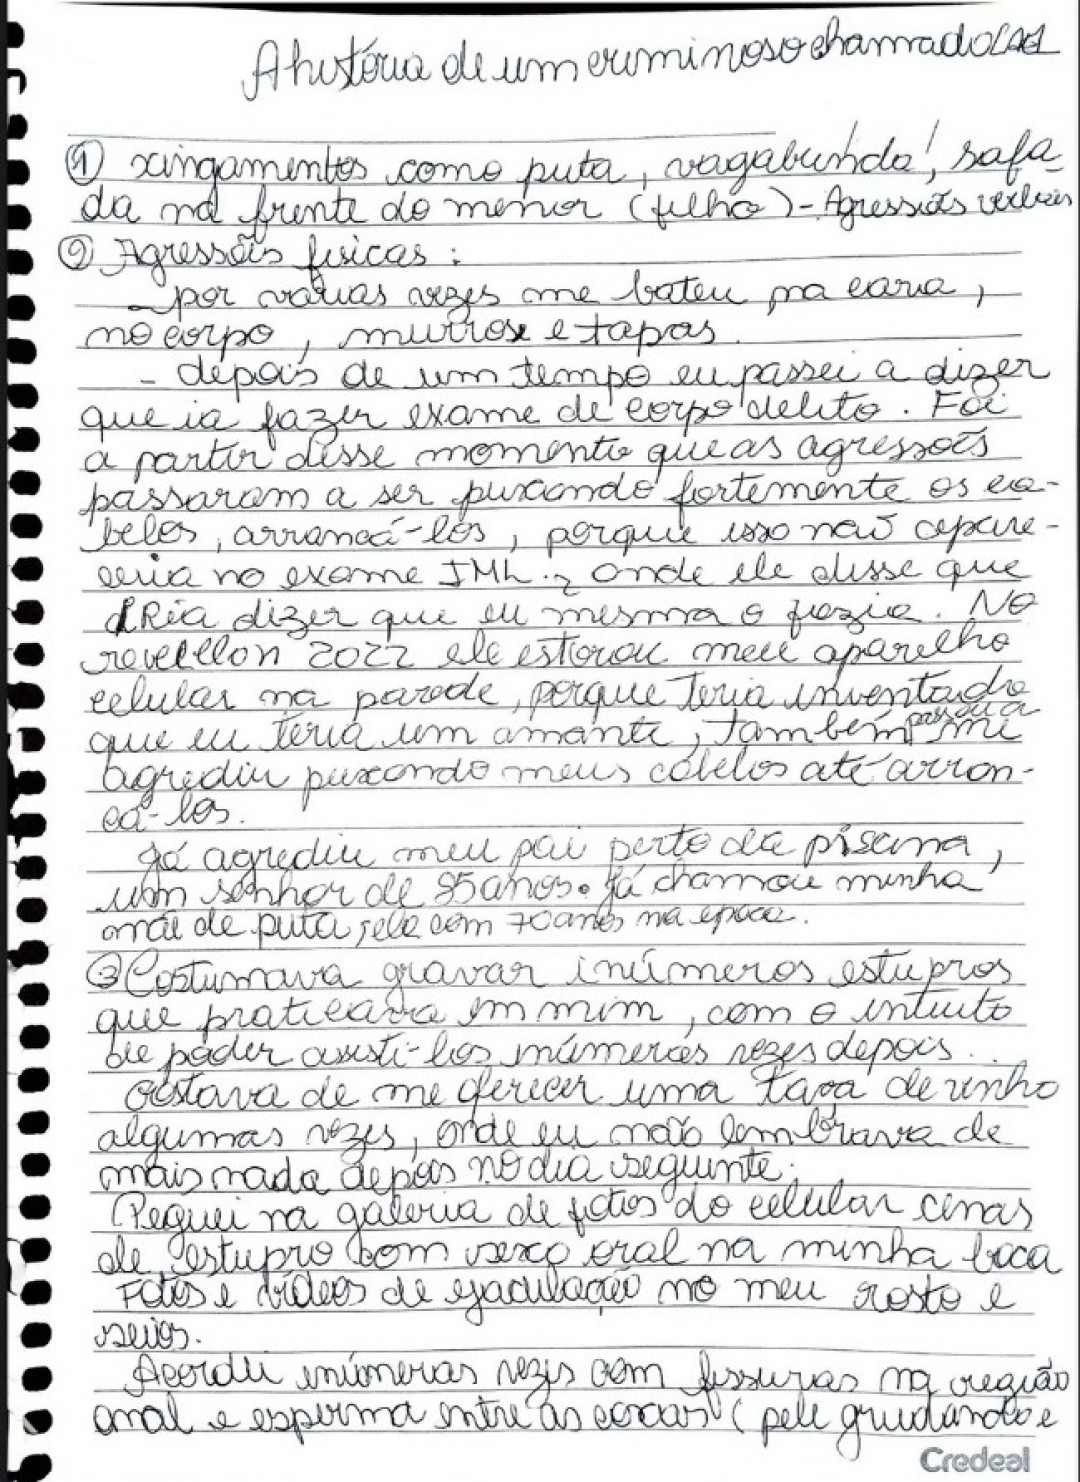 A história de um criminoso chamado
① xingamentos como puta, vagabunda!, safa-
da na frente do menor (filho) - Agressões verbais
② Agressões físicas:
- por várias vezes me bateu na cara,
no corpo, murros e tapas.
- depois de um tempo eu passei a dizer
que ia fazer exame de corpo delito. Foi
a partir desse momento que as agressões
passaram a ser puxando fortemente os ca-
belos, arrancá-los, porque isso não apare-
ceria no exame IML. onde ele disse que
iRia dizer que eu mesma o fazia. No
reveillon 2022 ele estorou meu aparelho
celular na parede, porque teria inventado
que eu teria um amante, também passou a mi
agrediu puxando meus cabelos até arran-
cá-los.
Já agrediu meu pai perto da piscina,
um senhor de 85 anos. Já chamou minha
mãe de puta, ela com 70 anos na época.
③ Costumava gravar inúmeros estupros
que praticava em mim, com o intuito
de poder assisti-los inúmeras vezes depois...
Gostava de me oferecer uma taça de vinho
algumas vezes, onde eu não lembrava de
mais nada depois no dia seguinte.
Peguei na galeria de fotos do celular cenas
de estupro com sexo oral na minha boca
Fotos e vídeos de ejaculação no meu rosto e
seios.
Acordei inúmeras vezes com fissuras na região
anal e esperma entre as coxas (pele grudando e
Credeal